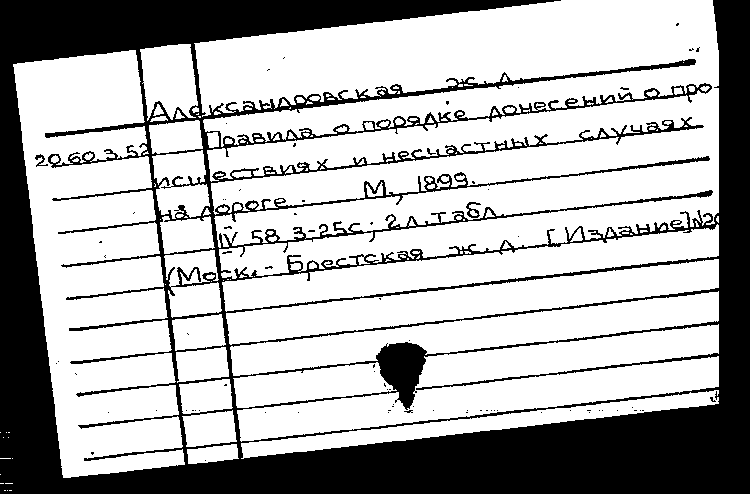 Александровская ж. д.
20.60.3.52. Правила о порядке донесений о про-
исшествиях и несчастных случаях
на дороге. М., 1899.
IV, 58, 3-25с; 2 л. табл.
(Моск.-Брестская ж. д. [Издание] №20